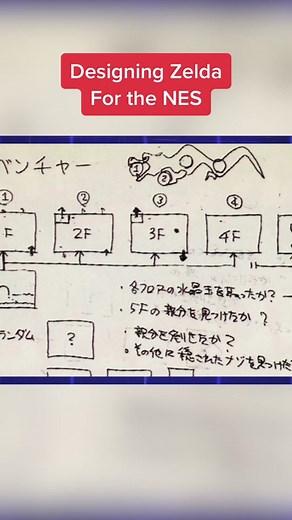 Designing Zelda
For the NES
ベンチャー
① ②
① ② ③ ④
F 2F 3F 4F
・各フロアの水晶玉を取ったか?
・5Fの親分を見つけたか?
ランダム ?
・親分を倒せたか?
・その他に隠されたナゾを見つけた